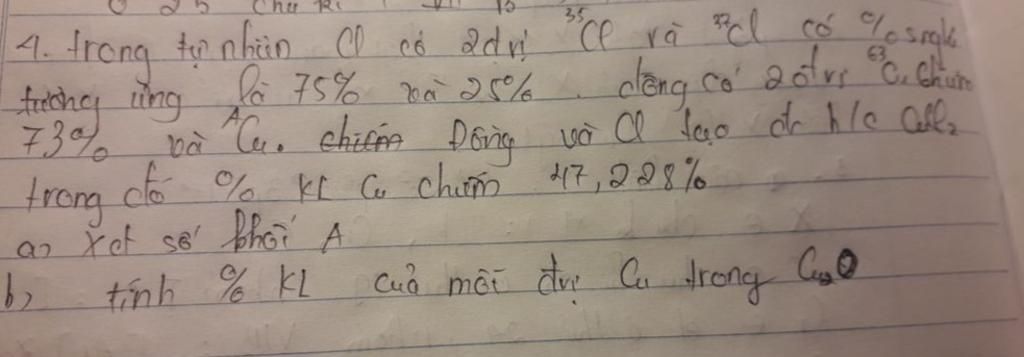 4. trong tự nhiên Cl có 2đvị ³⁵Cl và ³⁷Cl có % số ngtử
tương ứng là 75% và 25%. đồng có 2đvị ⁶³Cu chiếm
73% và ᴬCu. chiếm Đồng và Cl tạo đc h/c CuCl₂
trong đó % KL Cu chiếm 47,228%
a) xđ số khối A
b) tính % KL của mỗi đvị Cu trong Cu₂O